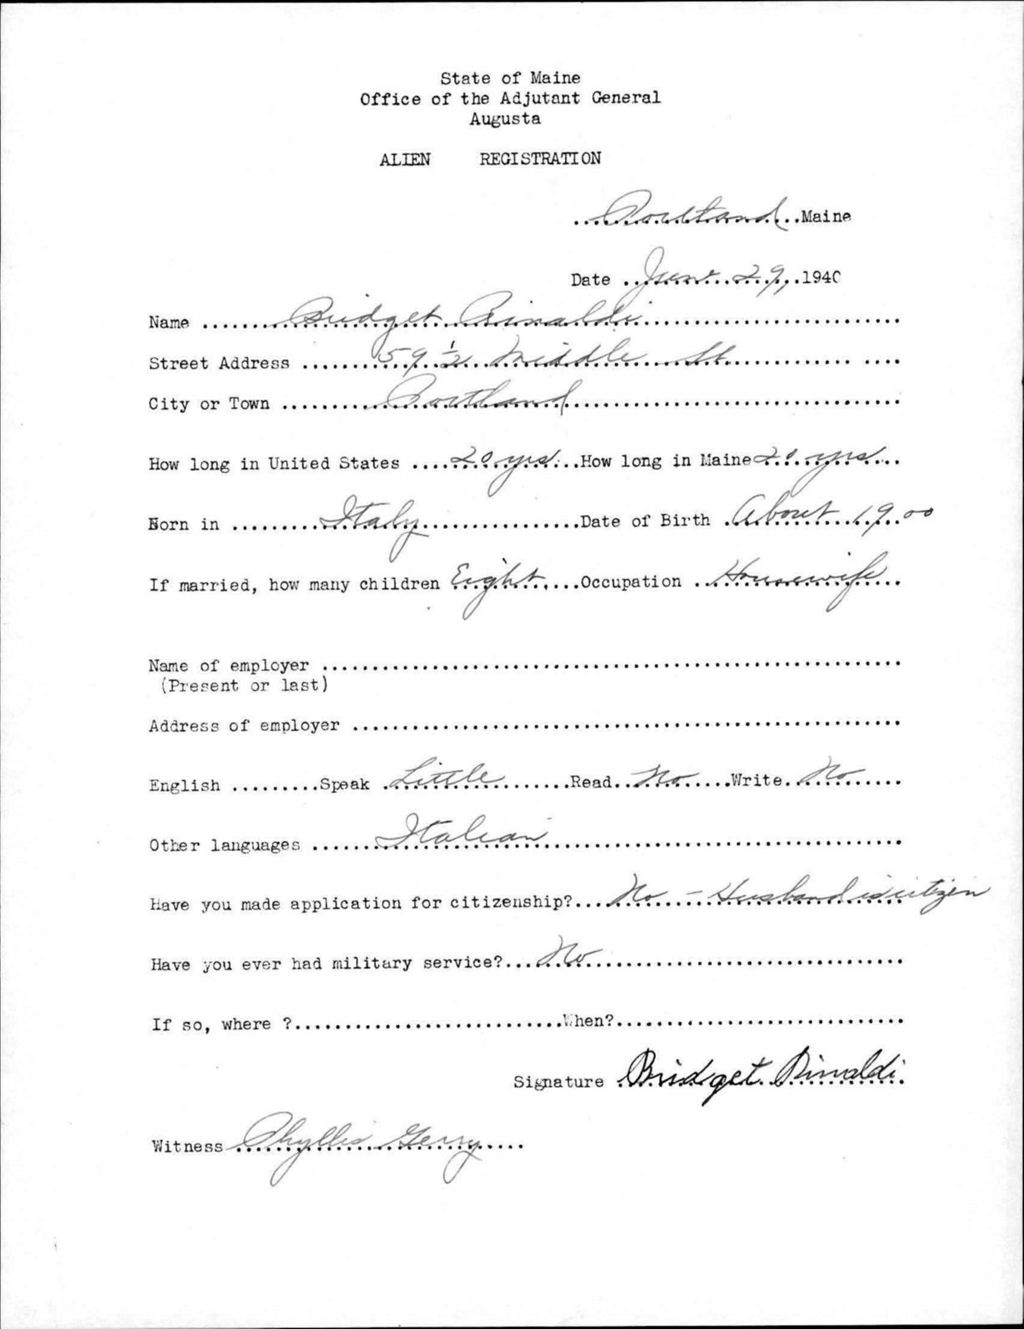 State of Maine
Office of the Adjutant General
Augusta
ALIEN REGISTRATION
Portland Maine
Date June 29, 1940
Name Bridget Rinaldi
Street Address 59 1/2 Middle St
City or Town Portland
How long in United States 20 yrs. How long in Maine 20 yrs
Born in Italy Date of Birth About 1900
If married, how many children Eight Occupation Housewife
Name of employer
(Present or last)
Address of employer
English Speak Little Read No Write No
Other languages Italian
Have you made application for citizenship? No - Husband is citizen
Have you ever had military service? No
If so, where ? When?
Signature Bridget Rinaldi
Witness Phyllis Gerry